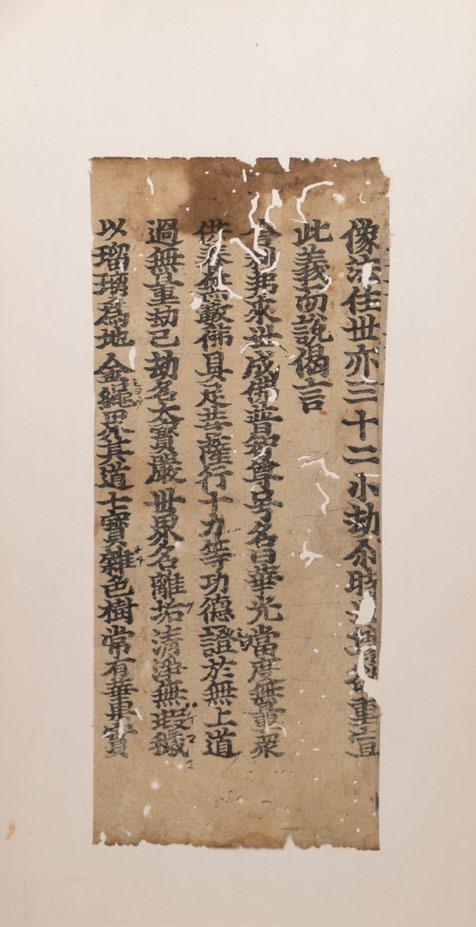 像法住世亦三十二小劫尒時世尊欲重宣
此義而說偈言
舍利弗來世成佛普智尊号名曰華光當度無量衆
供養無數佛具足菩薩行十力等功德證於無上道
過無量劫已劫名大寶嚴世界名離垢清淨無瑕穢
以瑠璃爲地金繩界其道七寶雜色樹常有華菓實